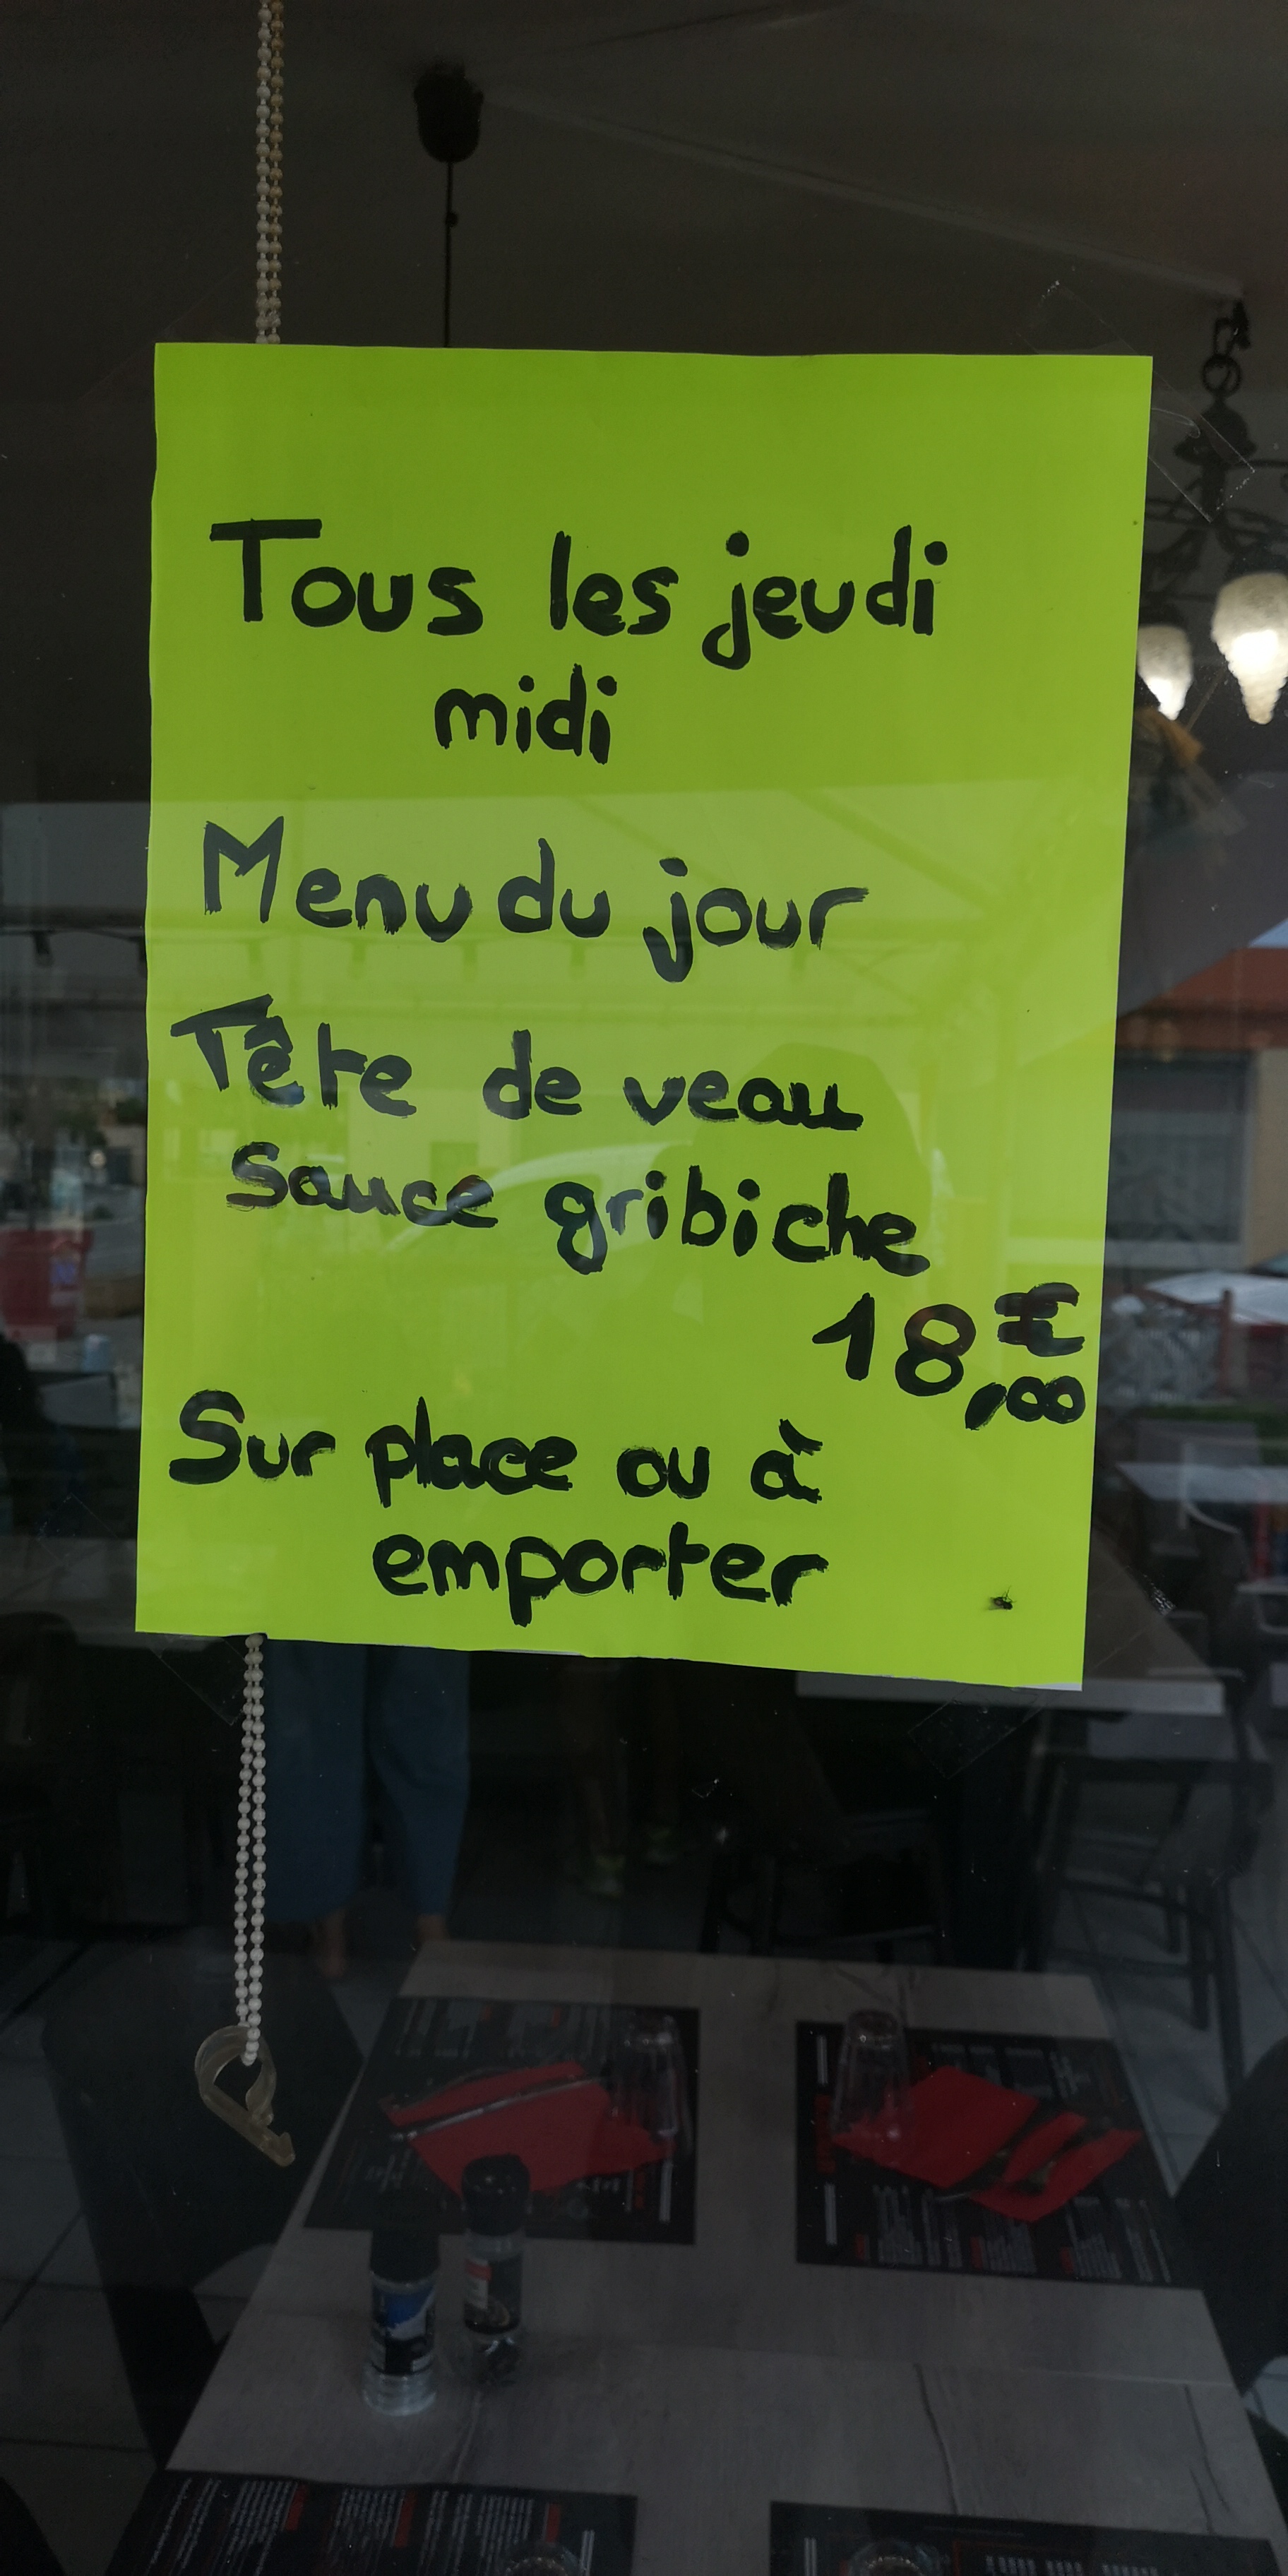 Tous les jeudi
midi
Menu du jour
Tête de veau
Sauce gribiche
18,00€
Sur place ou à
emporter